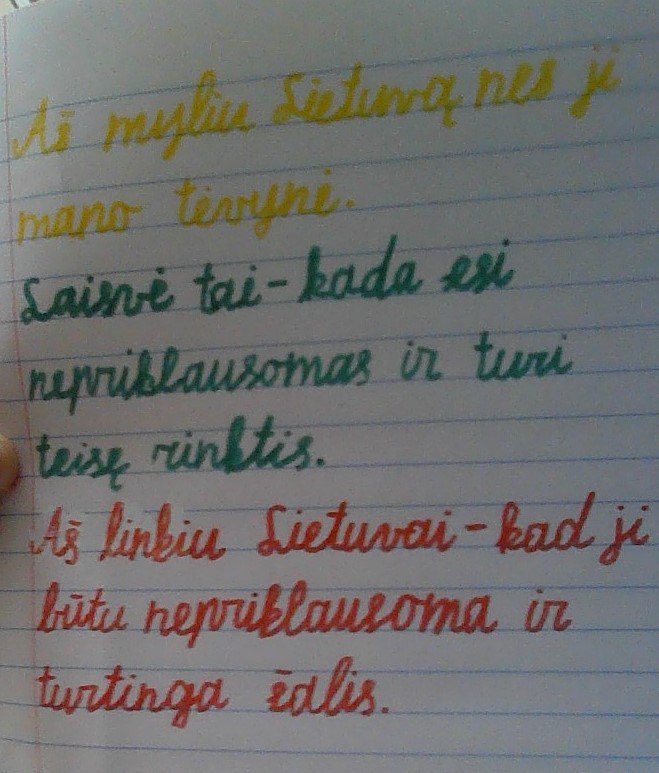 Aš myliu Lietuvą nes ji
mano tėvynė.
Laisvė tai-kada esi
nepriklausomas ir turi
teisę rinktis.
Aš linkiu Lietuvai-kad ji
būtu nepriklausoma ir
turtinga šalis.